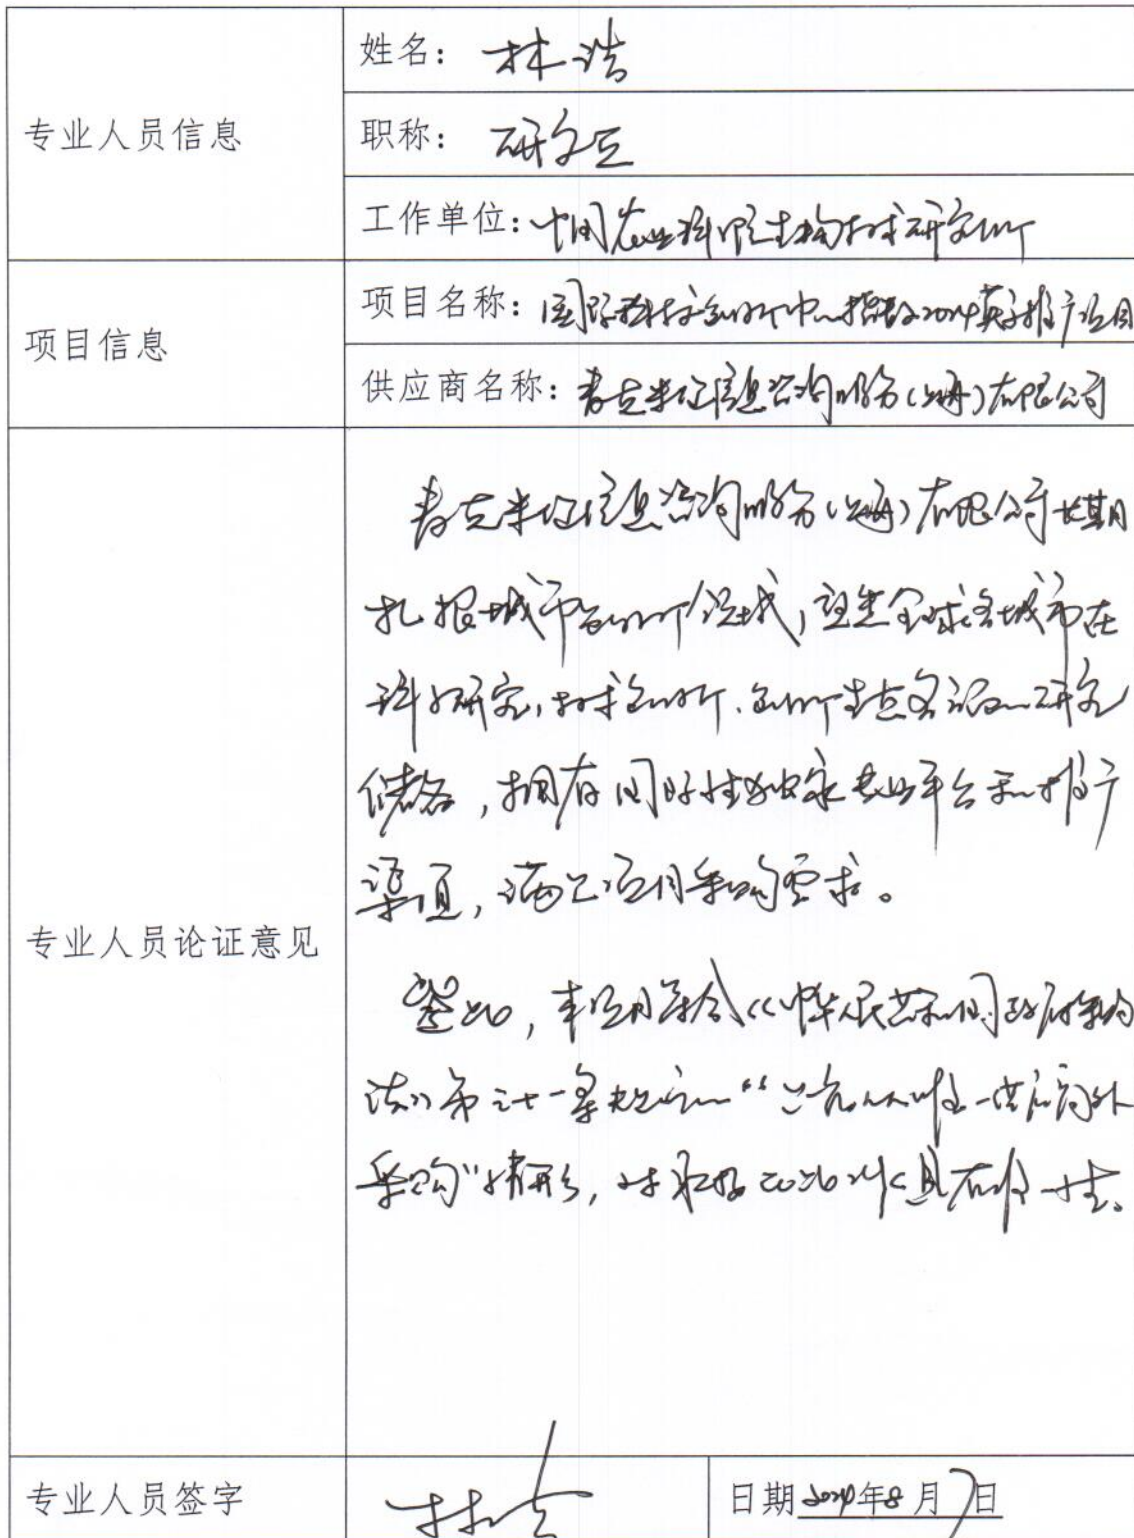 专业人员信息
姓名：林浩
职称：研究员
工作单位：中国农业科学院生物技术研究所
项目信息
项目名称：国际科技创新中心指数2024英文推广项目
供应商名称：施普林格信息咨询服务（上海）有限公司
专业人员论证意见
信息咨询服务（上海）有限公司长期
扎根城市创新领域，全球各城市在
科学研究，技术创新、创新生态研究
储备，拥有国际性独家专业平台和推广
渠道，满足项目采购要求。
鉴此，本项目符合《中华人民共和国政府采购
法》第三十一条规定的“只能从唯一供应商处
采购”情形，具有唯一性。
专业人员签字
日期 2024年8月7日